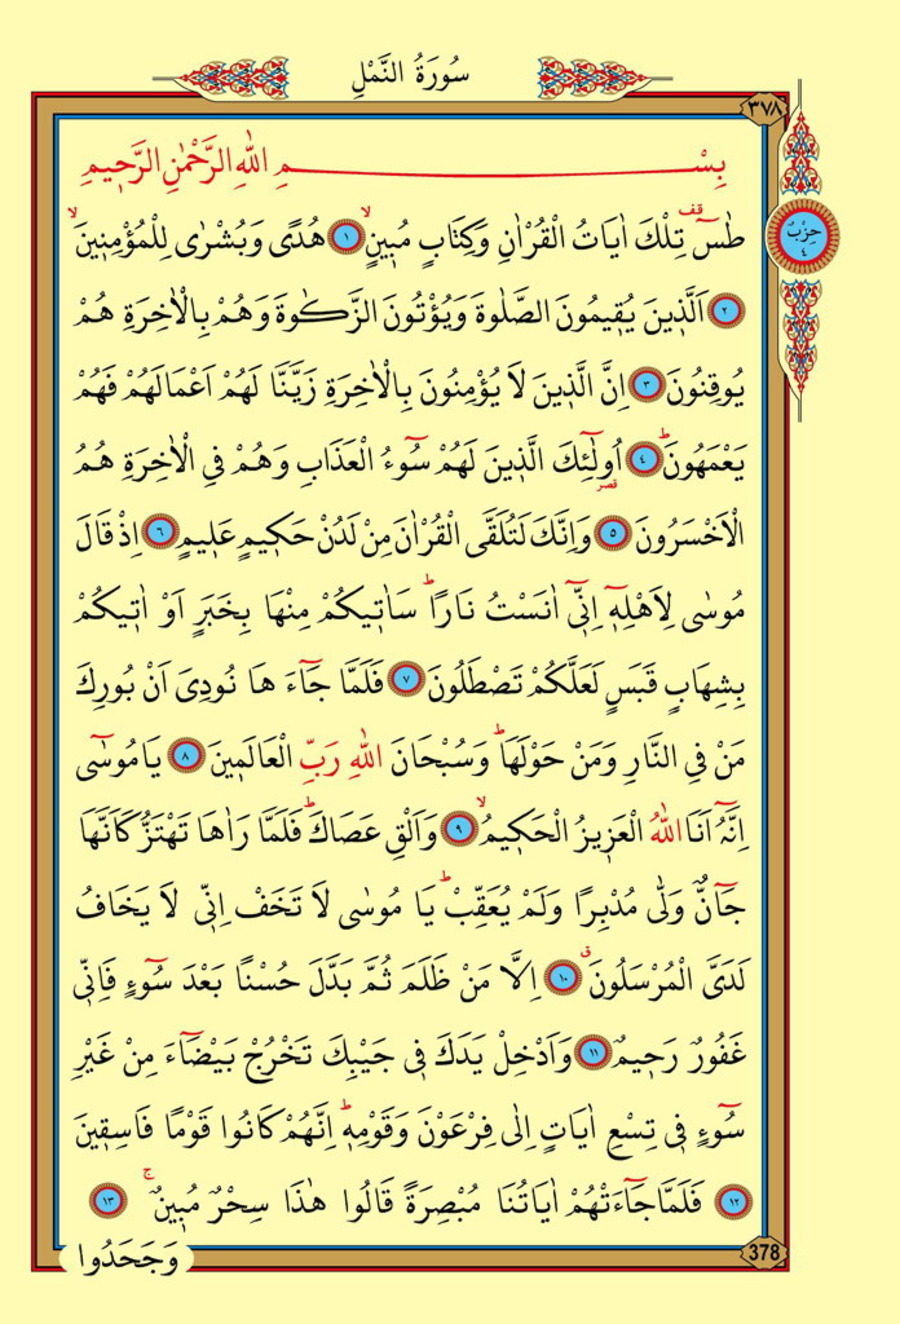 سُورَةُ النَّمْلِ
٣٧٨
بِسْمِ اللّٰهِ الرَّحْمٰنِ الرَّحٖيمِ
طٰسٓ تِلْكَ اٰيَاتُ الْقُرْاٰنِ وَكِتَابٍ مُبٖينٍۙ ١ هُدًى وَبُشْرٰى لِلْمُؤْمِنٖينَۙ
حِزْبٌ ٤
٢ اَلَّذٖينَ يُقٖيمُونَ الصَّلٰوةَ وَيُؤْتُونَ الزَّكٰوةَ وَهُمْ بِالْاٰخِرَةِ هُمْ
يُوقِنُونَ ٣ اِنَّ الَّذٖينَ لَا يُؤْمِنُونَ بِالْاٰخِرَةِ زَيَّنَّا لَهُمْ اَعْمَالَهُمْ فَهُمْ
يَعْمَهُونَؕ ٤ اُو۬لٰٓئِكَ الَّذٖينَ لَهُمْ سُٓوءُ الْعَذَابِ وَهُمْ فِي الْاٰخِرَةِ هُمُ
الْاَخْسَرُونَ ٥ وَاِنَّكَ لَتُلَقَّى الْقُرْاٰنَ مِنْ لَدُنْ حَكٖيمٍ عَلٖيمٍ ٦ اِذْ قَالَ
مُوسٰى لِاَهْلِهٖٓ اِنّٖٓي اٰنَسْتُ نَارًاؕ سَاٰتٖيكُمْ مِنْهَا بِخَبَرٍ اَوْ اٰتٖيكُمْ
بِشِهَابٍ قَبَسٍ لَعَلَّكُمْ تَصْطَلُونَ ٧ فَلَمَّا جَٓاءَهَا نُودِيَ اَنْ بُورِكَ
مَنْ فِي النَّارِ وَمَنْ حَوْلَهَاؕ وَسُبْحَانَ اللّٰهِ رَبِّ الْعَالَمٖينَ ٨ يَا مُوسٰٓى
اِنَّهُٓ اَنَا اللّٰهُ الْعَزٖيزُ الْحَكٖيمُۙ ٩ وَاَلْقِ عَصَاكَؕ فَلَمَّا رَاٰهَا تَهْتَزُّ كَاَنَّهَا
جَٓانٌّ وَلّٰى مُدْبِرًا وَلَمْ يُعَقِّبْؕ يَا مُوسٰى لَا تَخَفْ اِنّٖي لَا يَخَافُ
لَدَيَّ الْمُرْسَلُونَۗ ١٠ اِلَّا مَنْ ظَلَمَ ثُمَّ بَدَّلَ حُسْنًا بَعْدَ سُٓوءٍ فَاِنّٖي
غَفُورٌ رَحٖيمٌ ١١ وَاَدْخِلْ يَدَكَ فٖي جَيْبِكَ تَخْرُجْ بَيْضَٓاءَ مِنْ غَيْرِ
سُٓوءٍ فٖي تِسْعِ اٰيَاتٍ اِلٰى فِرْعَوْنَ وَقَوْمِهٖؕ اِنَّهُمْ كَانُوا قَوْمًا فَاسِقٖينَ
١٢ فَلَمَّا جَٓاءَتْهُمْ اٰيَاتُنَا مُبْصِرَةً قَالُوا هٰذَا سِحْرٌ مُبٖينٌۚ ١٣
وَجَحَدُوا
378